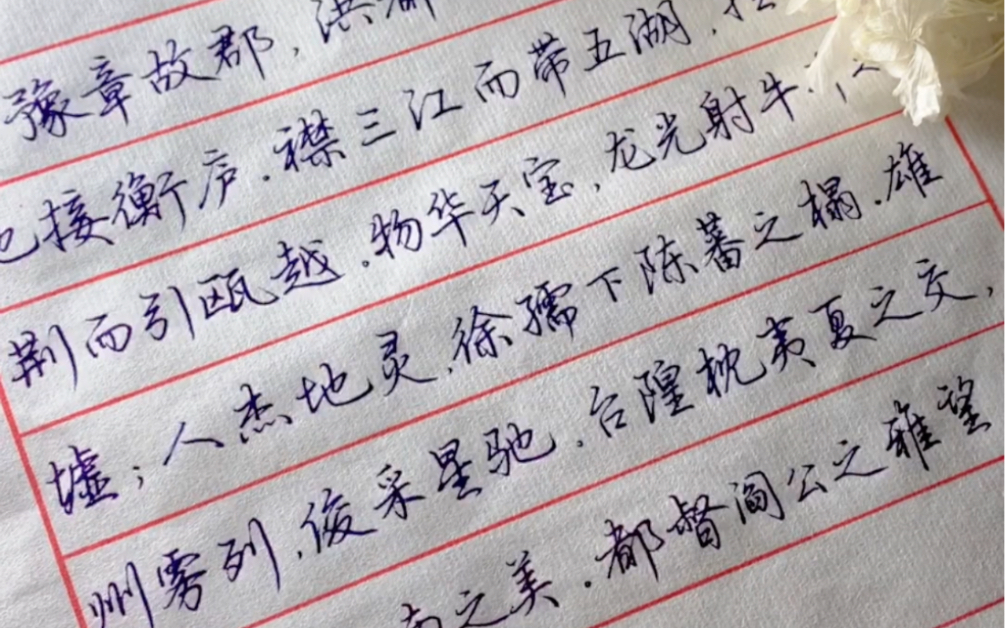 豫章故郡,洪都
接衡庐.襟三江而带五湖,
荆而引瓯越.物华天宝,龙光射牛
墟;人杰地灵,徐孺下陈蕃之榻.雄
州雾列,俊采星驰.台隍枕夷夏之交,
南之美.都督阎公之雅望